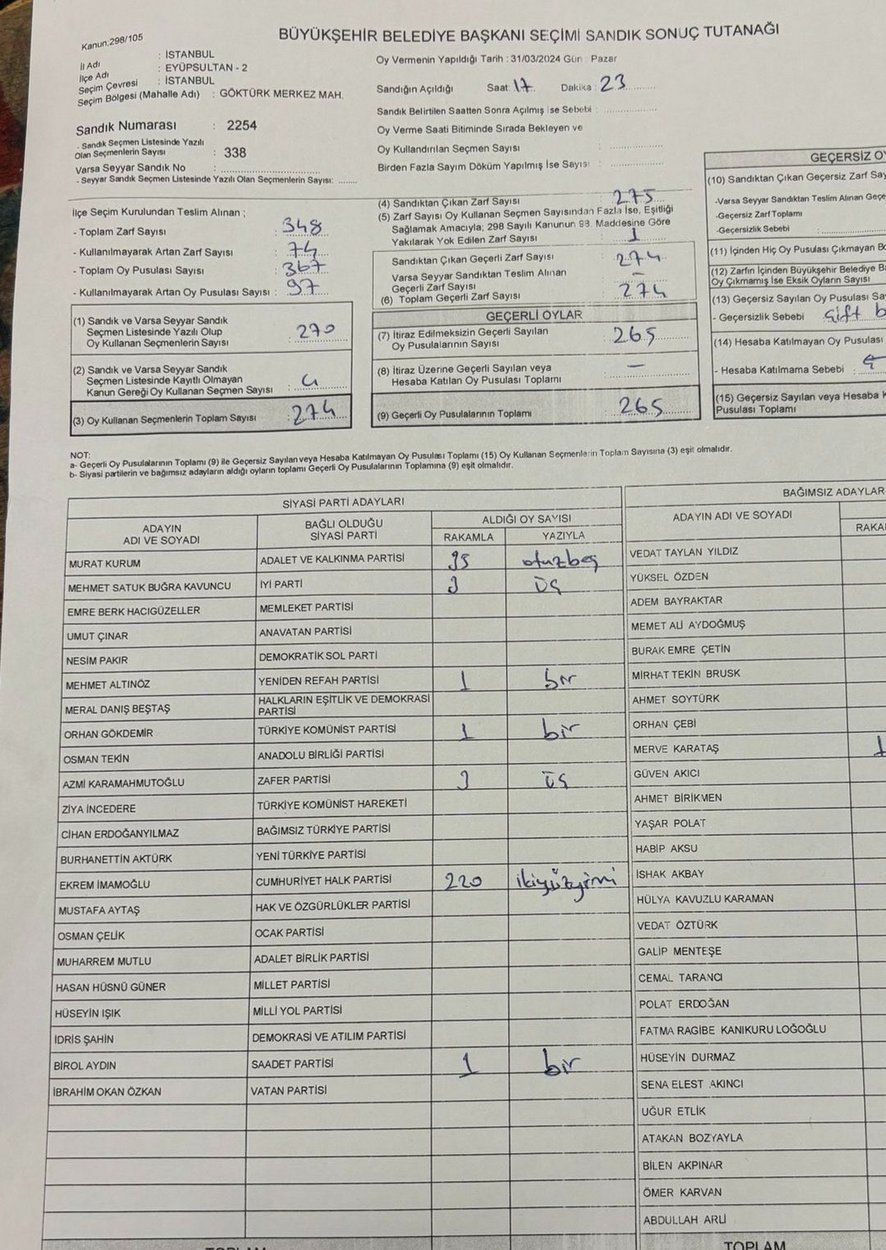 Kanun.298/105
BÜYÜKŞEHİR BELEDİYE BAŞKANI SEÇİMİ SANDIK SONUÇ TUTANAĞI
İl Adı : İSTANBUL
İlçe Adı : EYÜPSULTAN - 2
Seçim Çevresi : İSTANBUL
Seçim Bölgesi (Mahalle Adı) : GÖKTÜRK MERKEZ MAH.
Sandık Numarası : 2254
- Sandık Seçmen Listesinde Yazılı
Olan Seçmenlerin Sayısı : 338
Varsa Seyyar Sandık No :
- Seyyar Sandık Seçmen Listesinde Yazılı Olan Seçmenlerin Sayısı:
Oy Vermenin Yapıldığı Tarih : 31/03/2024 Gün : Pazar
Sandığın Açıldığı Saat : 17 Dakika : 23
Sandık Belirtilen Saatten Sonra Açılmış İse Sebebi :
Oy Verme Saati Bitiminde Sırada Bekleyen ve
Oy Kullandırılan Seçmen Sayısı :
Birden Fazla Sayım Döküm Yapılmış İse Sayısı :
İlçe Seçim Kurulundan Teslim Alınan ;
- Toplam Zarf Sayısı : 348
- Kullanılmayarak Artan Zarf Sayısı : 74
- Toplam Oy Pusulası Sayısı : 367
- Kullanılmayarak Artan Oy Pusulası Sayısı : 97
(1) Sandık ve Varsa Seyyar Sandık
Seçmen Listesinde Yazılı Olup
Oy Kullanan Seçmenlerin Sayısı : 270
(2) Sandık ve Varsa Seyyar Sandık
Seçmen Listesinde Kayıtlı Olmayan
Kanun Gereği Oy Kullanan Seçmen Sayısı : 4
(3) Oy Kullanan Seçmenlerin Toplam Sayısı : 274
(4) Sandıktan Çıkan Zarf Sayısı : 275
(5) Zarf Sayısı Oy Kullanan Seçmen Sayısından Fazla İse, Eşitliği
Sağlamak Amacıyla; 298 Sayılı Kanunun 98. Maddesine Göre
Yakılarak Yok Edilen Zarf Sayısı : 1
Sandıktan Çıkan Geçerli Zarf Sayısı : 274
Varsa Seyyar Sandıktan Teslim Alınan
Geçerli Zarf Sayısı : -
(6) Toplam Geçerli Zarf Sayısı : 274
GEÇERLİ OYLAR
(7) İtiraz Edilmeksizin Geçerli Sayılan
Oy Pusulalarının Sayısı : 265
(8) İtiraz Üzerine Geçerli Sayılan veya
Hesaba Katılan Oy Pusulası Toplamı : -
(9) Geçerli Oy Pusulalarının Toplamı : 265
GEÇERSİZ OY
(10) Sandıktan Çıkan Geçersiz Zarf Say
-Varsa Seyyar Sandıktan Teslim Alınan Geçe
-Geçersiz Zarf Toplamı
-Geçersizlik Sebebi :
(11) İçinden Hiç Oy Pusulası Çıkmayan B
(12) Zarfın İçinden Büyükşehir Belediye B
Oy Çıkmamış İse Eksik Oyların Sayısı
(13) Geçersiz Sayılan Oy Pusulası Sa
- Geçersizlik Sebebi : Çift b
(14) Hesaba Katılmayan Oy Pusulası
- Hesaba Katılmama Sebebi :
(15) Geçersiz Sayılan veya Hesaba K
Pusulası Toplamı
NOT:
a- Geçerli Oy Pusulalarının Toplamı (9) ile Geçersiz Sayılan veya Hesaba Katılmayan Oy Pusulası Toplamı (15) Oy Kullanan Seçmenlerin Toplam Sayısına (3) eşit olmalıdır.
b- Siyasi partilerin ve bağımsız adayların aldığı oyların toplamı Geçerli Oy Pusulalarının Toplamına (9) eşit olmalıdır.
SİYASİ PARTİ ADAYLARI
ADAYIN ADI VE SOYADI BAĞLI OLDUĞU SİYASİ PARTİ ALDIĞI OY SAYISI
RAKAMLA YAZIYLA
MURAT KURUM ADALET VE KALKINMA PARTİSİ 35 otuzbeş
MEHMET SATUK BUĞRA KAVUNCU İYİ PARTİ 3 üç
EMRE BERK HACIGÜZELLER MEMLEKET PARTİSİ
UMUT ÇINAR ANAVATAN PARTİSİ
NESİM PAKIR DEMOKRATİK SOL PARTİ
MEHMET ALTINÖZ YENİDEN REFAH PARTİSİ 1 bir
MERAL DANIŞ BEŞTAŞ HALKLARIN EŞİTLİK VE DEMOKRASİ PARTİSİ
ORHAN GÖKDEMİR TÜRKİYE KOMÜNİST PARTİSİ 1 bir
OSMAN TEKİN ANADOLU BİRLİĞİ PARTİSİ
AZMİ KARAMAHMUTOĞLU ZAFER PARTİSİ 3 üç
ZİYA İNCEDERE TÜRKİYE KOMÜNİST HAREKETİ
CİHAN ERDOĞANYILMAZ BAĞIMSIZ TÜRKİYE PARTİSİ
BURHANETTİN AKTÜRK YENİ TÜRKİYE PARTİSİ
EKREM İMAMOĞLU CUMHURİYET HALK PARTİSİ 220 ikiyüzyirmi
MUSTAFA AYTAŞ HAK VE ÖZGÜRLÜKLER PARTİSİ
OSMAN ÇELİK OCAK PARTİSİ
MUHARREM MUTLU ADALET BİRLİK PARTİSİ
HASAN HÜSNÜ GÜNER MİLLET PARTİSİ
HÜSEYİN IŞIK MİLLİ YOL PARTİSİ
İDRİS ŞAHİN DEMOKRASİ VE ATILIM PARTİSİ
BİROL AYDIN SAADET PARTİSİ 1 bir
İBRAHİM OKAN ÖZKAN VATAN PARTİSİ
BAĞIMSIZ ADAYLAR
ADAYIN ADI VE SOYADI RAKA
VEDAT TAYLAN YILDIZ
YÜKSEL ÖZDEN
ADEM BAYRAKTAR
MEMET ALİ AYDOĞMUŞ
BURAK EMRE ÇETİN
MİRHAT TEKİN BRUSK
AHMET SOYTÜRK
ORHAN ÇEBİ
MERVE KARATAŞ 1
GÜVEN AKICI
AHMET BİRİKMEN
YAŞAR POLAT
HABİP AKSU
İSHAK AKBAY
HÜLYA KAVUZLU KARAMAN
VEDAT ÖZTÜRK
GALİP MENTEŞE
CEMAL TARANCI
POLAT ERDOĞAN
FATMA RAGİBE KANIKURU LOĞOĞLU
HÜSEYİN DURMAZ
SENA ELEST AKINCI
UĞUR ETLİK
ATAKAN BOZYAYLA
BİLEN AKPINAR
ÖMER KARVAN
ABDULLAH ARLI
TOPLAM
TOPLAM